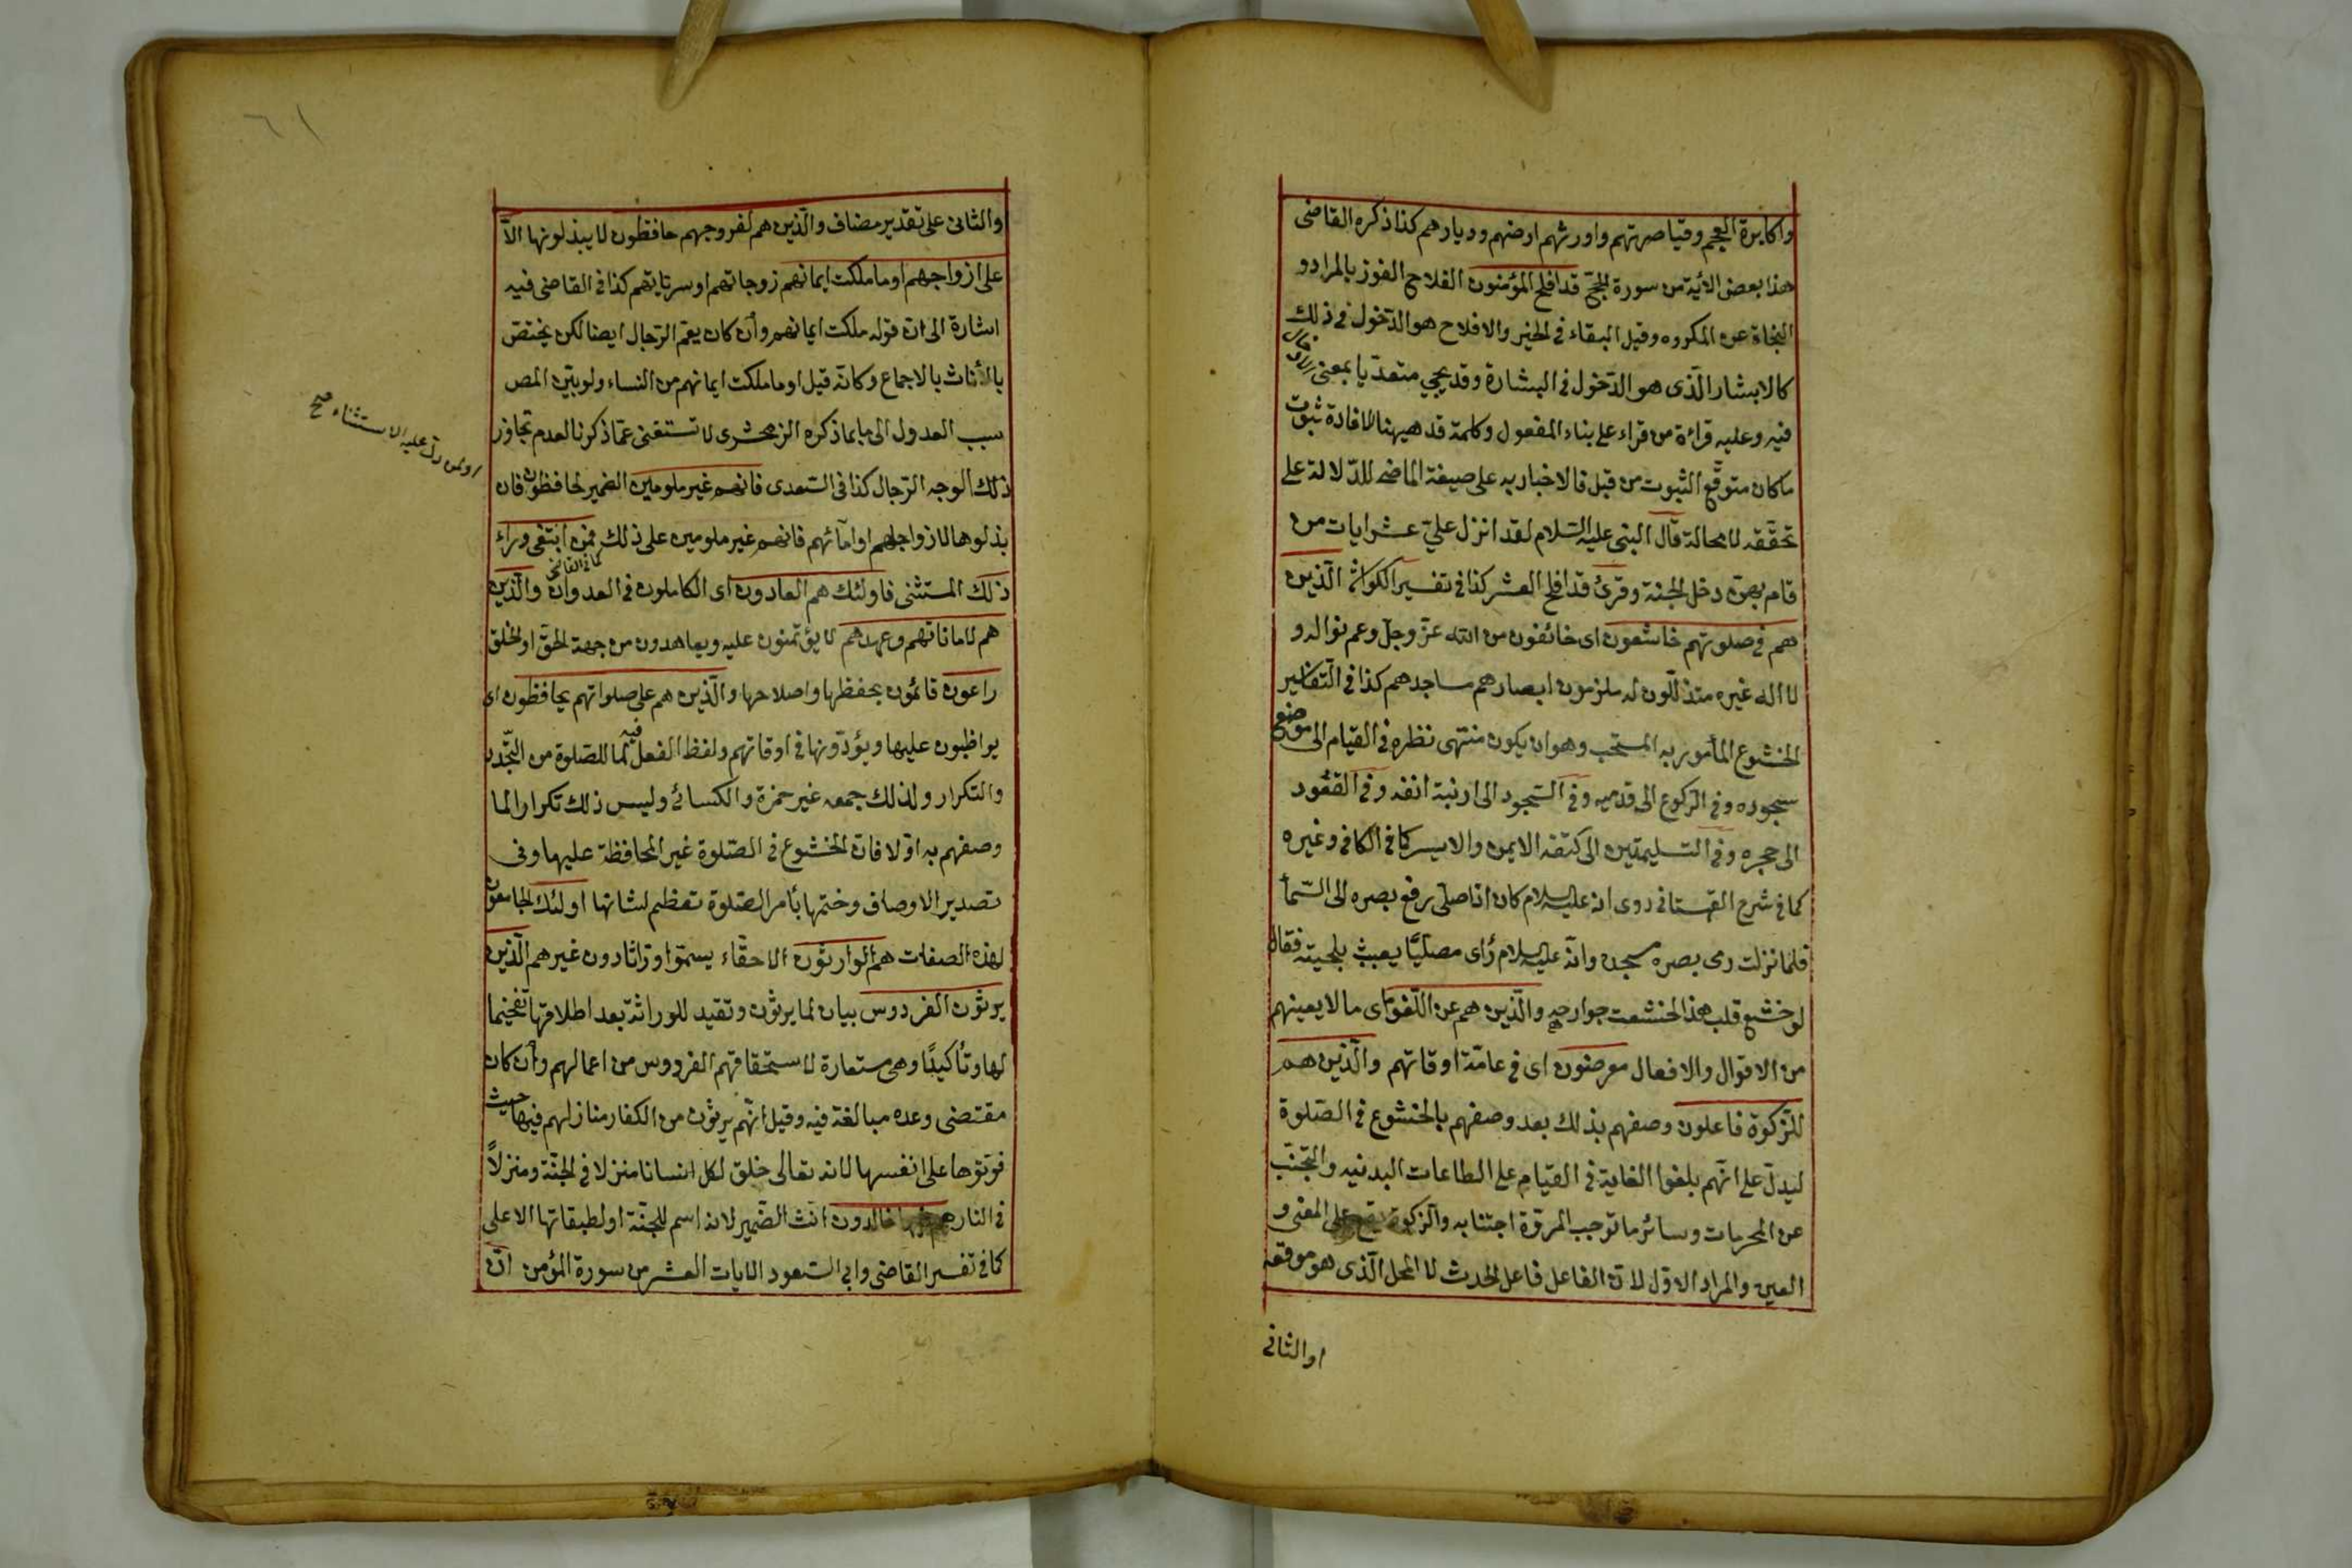 واكابرة العجم وقياصرتهم واورثهم ارضهم وديارهم كذا ذكره القاضى
هذا بعض الأية من سورة الحجّ قد افلح المؤمنون الفلاح الفوز بالمراد و
النجاة عن المكروه وقيل البقاء فى الخير والافلاح هو الدّخول فى ذلك
كالابشار الّذى هو الدّخول فى البشارة وقد يجئ متعدّيا بمعنى الادخال
فيه وعليه قرائة من قراء على بناء المفعول وكلمة قد هيهنا لافادة ثبوت
ما كان متوقّع الثبوت من قبل فالاخبار به على صيغة الماضى للدّلالة على
تحقّقه لا محالة قال النبى عليه السّلام لقد انزل علىّ عشر ايات من
قام بهنّ دخل الجنة وقرئ قد افلح العشر كذا فى تفسير الكواشى الّذين
هم فى صلوتهم خاشعون اى خائفون من الله عزّ وجلّ وعم نواله و
لا اله غيره متذلّلون له ملزمون ابصارهم مساجدهم كذا فى التفاسير
الخشوع المأمور به المستحب وهو ان يكون منتهى نظره فى القيام الى موضع
سجوده وفى الرّكوع الى قدميه وفى السّجود الى ارنبة انفه وفى القعود
الى حجره وفى التسليمتين الى كتفه الايمن والايسر كما فى الكافى وغيره
كما فى شرح القهستانى روى انه عليه السلام كان اذا صلّى رفع بصره الى السّمأ
فلمّا نزلت رمى بصره مسجده وانّه عليه السلام رأى مصلّيًا يعبث بلحيته فقال
لو خشع قلب هذا لخشعت جوارحه والّذين هم عن اللّغو اى ما لا يعينهم
من الاقوال والافعال معرضون اى فى عامّة اوقاتهم والّذين هم
للزّكوة فاعلون وصفهم بذلك بعد وصفهم بالخشوع فى الصّلوة
ليدلّ على انّهم بلغوا الغاية فى القيام على الطاعات البدنيه والتّجنّب
عن المحرمات وسائر ما توجب المروّة اجتنابه والزكوة يقع على المعنى و
العين والمراد الاوّل لانّ الفاعل فاعل الحدث لا المحل الّذى هو موقعه
او الثانى
٦١
والثانى على تقدير مضاف والّذين هم لفروجهم حافظون لا يبذلونها الاّ
على ازواجهم او ما ملكت ايمانهم زوجاتهم او سرياتهم كذا فى القاضى فيه
اشارة الى انّ قوله ملكت ايمانهم وأن كان يعمّ الرّجال ايضا لكن يختصّ
بالأناث بالاجماع وكانّه قيل او ما ملكت ايمانهم من النساء ولو بيّن المص
سبب العدول الى ما بما ذكره الزمحشرى لا تستغنى عمّا ذكرنا لعدم تجاوز
ذلك الوجه الرّجال كذا فى السّعدى فانهم غير ملومين الضمير لحافظون فان
او لمن دلّ عليه الاستثناء صح
بذلوها لازواجهم او امآئهم فانهم غير ملومين على ذلك فمن ابتغى وراء
ذلك المستثنى فاولئك هم العادون اى الكاملون فى العدوان كما فى القاضى والّذين
هم لاماناتهم وعهدهم لما يؤتمنون عليه ويعاهدون من جهة الحقّ او الخلق
راعون قائمون بحفظها واصلاحها والّذين هم على صلواتهم يحافظون اى
يواظبون عليها ويؤدّونها فى اوقاتهم ولفظ الفعل فيه لما للصّلوة من التّجدّد
والتكرار ولذلك جمعه غير حمزة والكسائى وليس ذلك تكرارا لما
وصفهم به اوّلا فانّ الخشوع فى الصّلوة غير المحافظة عليها وفى
تصدير الاوصاف وختمها بأمر الصّلوة تعظيم لشانها اولئك الجامعون
لهذه الصفات هم الوارثون الاحقّاء يسمّوا ورّاثا دون غيرهم الّذين
يرثون الفردوس بيان لما يرثون وتقيد للوراثة بعد اطلاقها تفخيما
لها وتأكيدًا وهى مستعارة لاستحقاقهم الفردوس من اعمالهم وأن كان
مقتضى وعده مبالغة فيه وقيل انّهم يرثون من الكفار منازلهم فيها حيث
فوّتوها على انفسها لانه تعالى خلق لكل انسانا منزلا فى الجنّة ومنزلاً
فى النار هم فيها خالدون انّث الضّمير لانه اسم للجنّة او لطبقاتها الاعلى
كما فى تفسير القاضى وابى السّعود الايات العشر من سورة المؤمن انّ